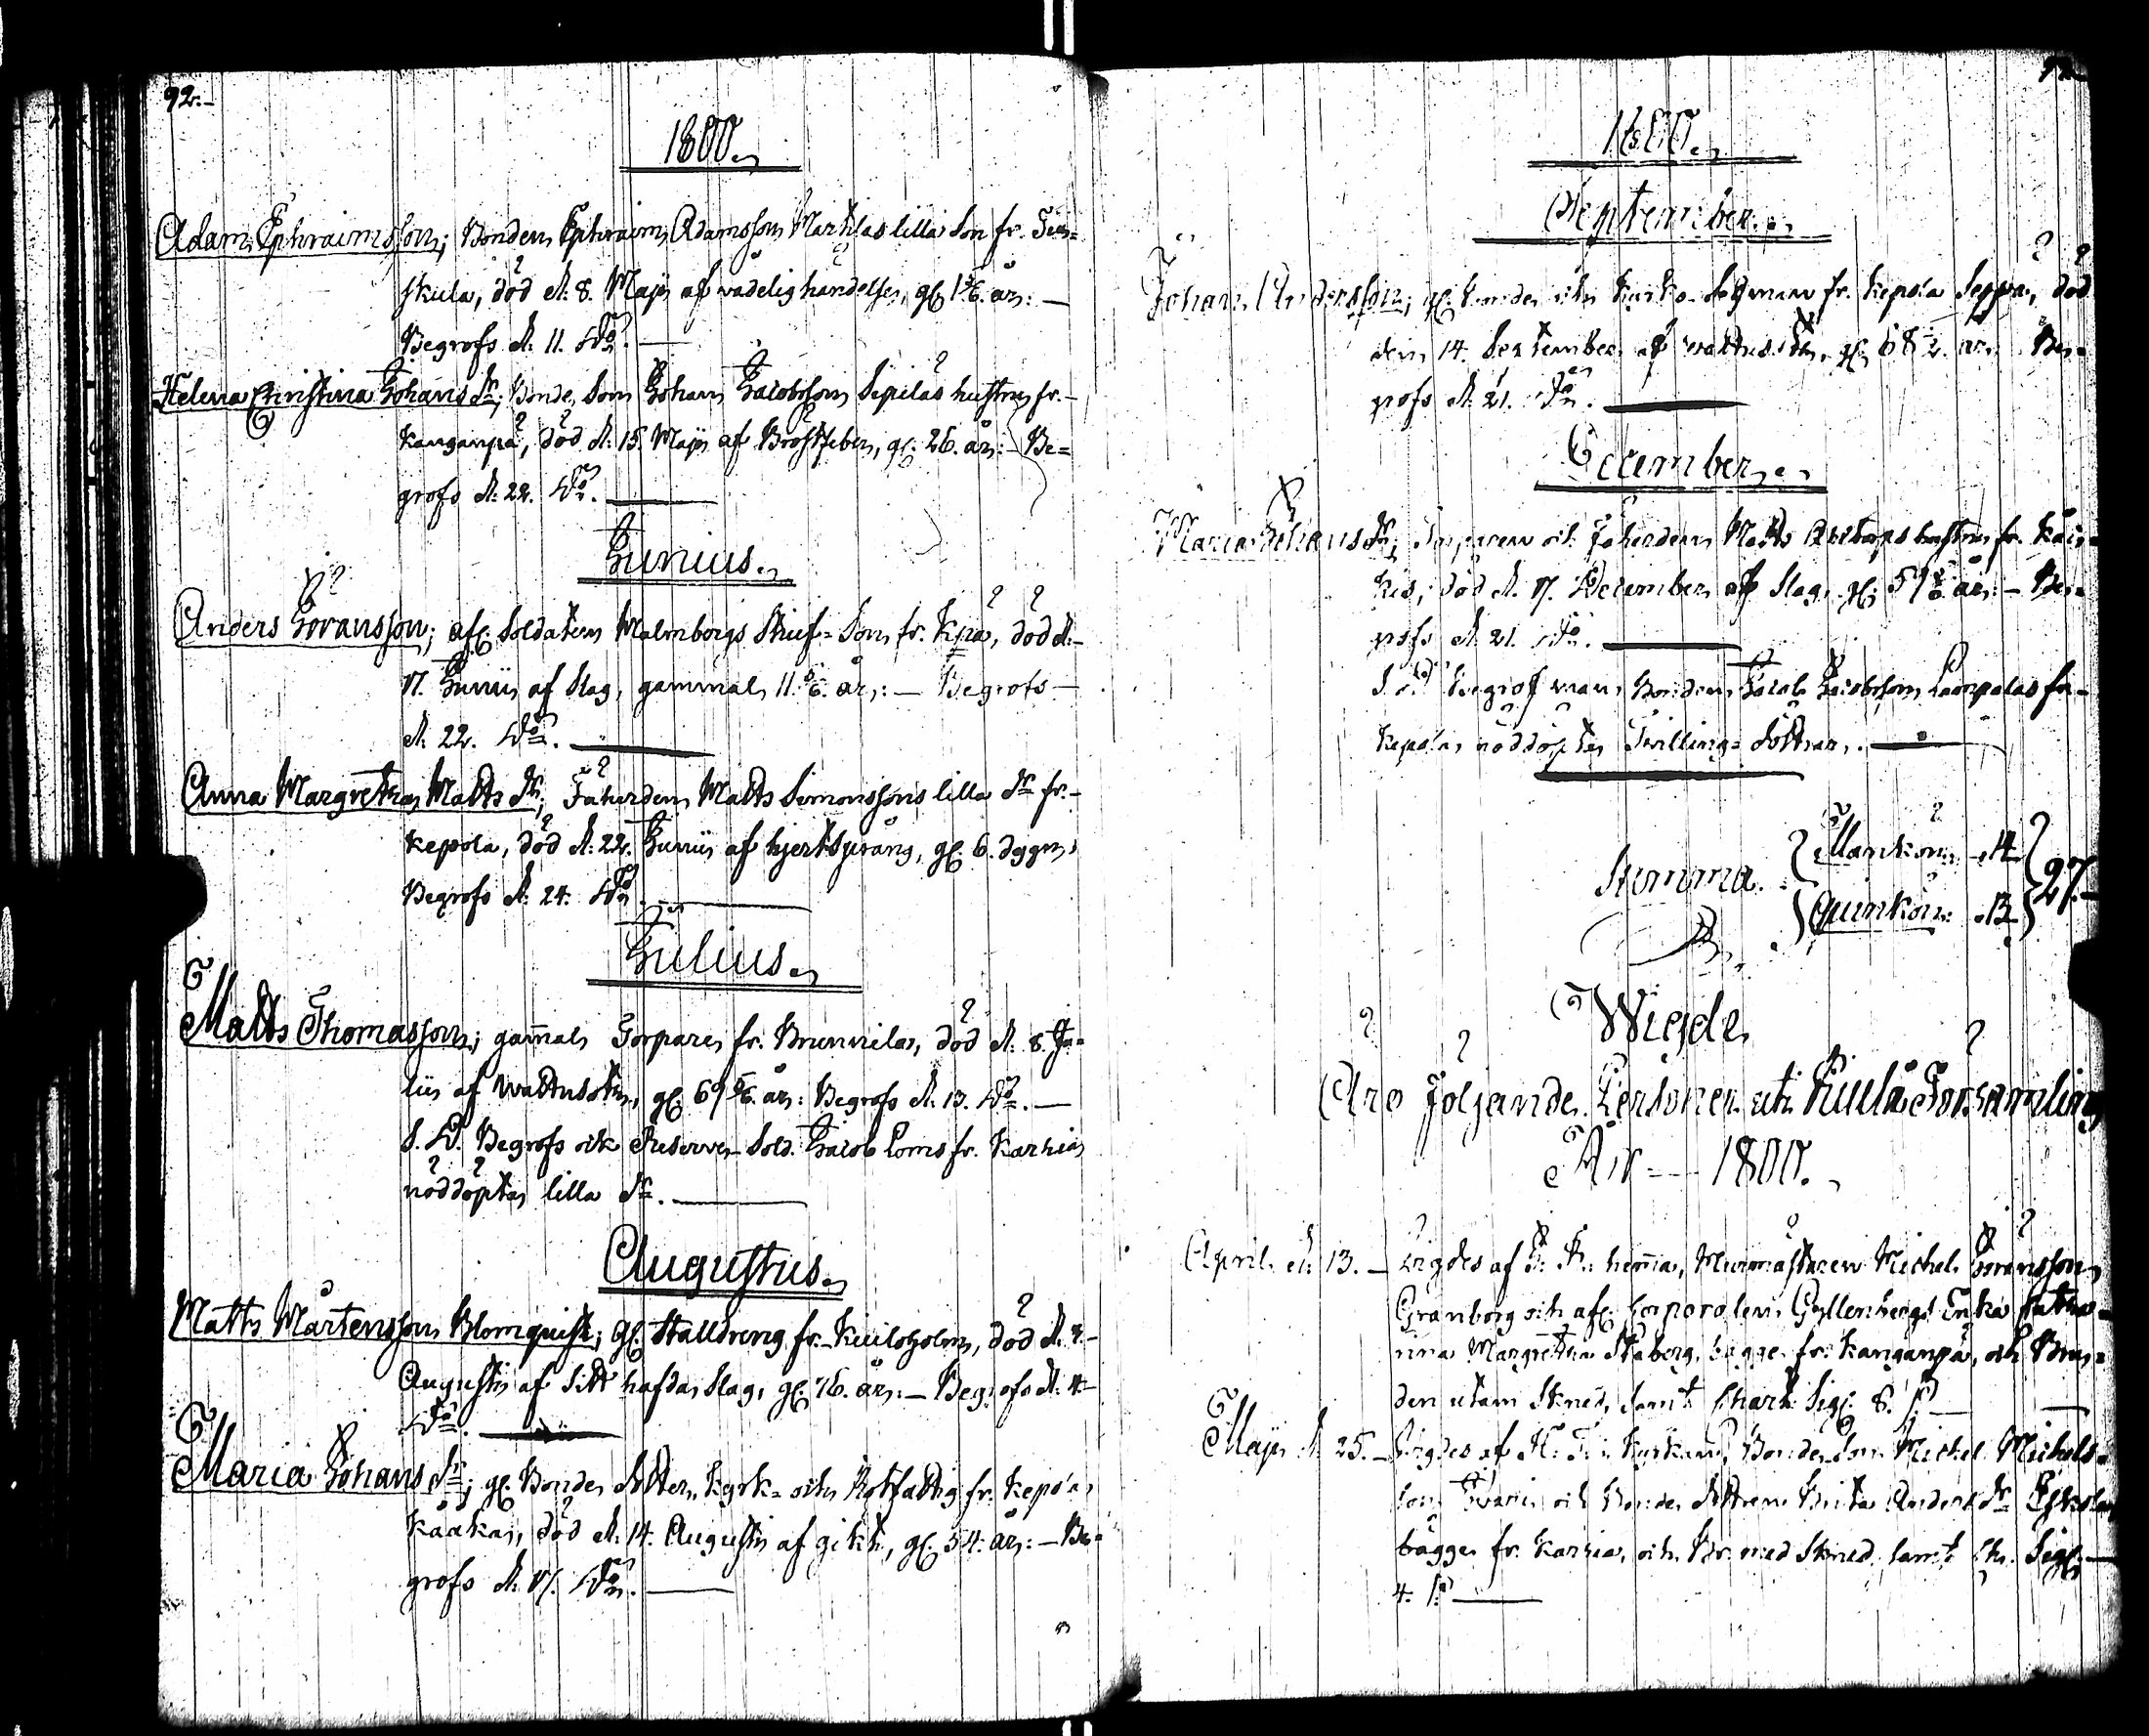 92.
1800.
Adam Ephraimsson; Bonden Ephraim Adamsson Marttlas lilla Son fr.
skula, död d. 8. Maji af vådelig händelse, gl. år: —
Begrofs d. 11. Do. —
Helena Christina Johans Dr; Bonde Son Johan Jacobsson Sipilas hustru fr.
Kanganpä, död d. 15. Maji af Bröstfeber, gl: 26. år: — Be=
grofs d. 22. Do. —
Junius.
Anders Göransson; afl: Soldaten Malmborgs Stiuf=Son fr. död d.
17. Junii af Slag, gammal 11. år: — Begrofs —
d. 22. Do. —
Anna Margretha Matts Dr; Fäherden Matts Simonssons lilla Dr fr.
Kepola, död d. 22. Junii af hjertsprång, gl: 6. dygn,
Begrofs d. 24. Do. —
Julius.
Matts Thomasson; gamal Torpare fr. Brunnila, död d. 8. Ju=
lii af Wattusoten, gl: 69 år: Begrofs d. 13. Do. —
S. D. Begrofs ock Reserve Sold. Jacob Loms fr. Karhia
nöddöpta lilla Dr. —
Augustus.
Matts Mårtensson Blomquist; Gl: Stalldreng fr. Kuiloholm, död d.
Augusti af Sitt hafda Slag, gl: 76. år: — Begrofs d. 4
Do. —
Maria Johans Dr; gl: Bonde Dotter, Kyrk= och Rotfattig fr. Kepola
Kåaka, död d. 14. Augusti af gikt, gl: 54. år: — Be=
grofs d. 17. Do. —
1800.
September.
Johan Andersson; gl: Bonde och Kyrko fr. Kepola Seppä, död
den 14. September af Wattusoten, gl: 68 år, Be=
grofs d. 21. Do. —
December.
Maria Johans Dr; Torparen och Fäherden Matts hustru fr. Käi=
kis, död d. 17. December af Slag, gl: år: — Be=
grofs d. 21. Do. —
S. D. Begrof man Bonden Jacob Jacobsson fr.
Kepola nöddöpta Tvilling=Döttrar. —
Summa. Mankön: 14
Quinkön: 13 27.
Wigde
Äro följande Personer uti Kuula Församling
År — 1800.
April d. 13. — Wigdes af hema, Murmästaren Michel Göransson
Granborg och afl: Corporalen Gyllenbergs Enka Catha=
rina Margretha Staberg, bägge fr. Kanganpä, och Bru=
den utom Skrud, Samt Chart: Sigl: 8. s.
Maji d. 25. — Wigdes af Bonde Son Michel Michels=
son och Bonde Dottren Brita Anders Dr
bägge fr. Karhia, och Br. med Skrud, samt Ch. Sigl: —
4. s. —